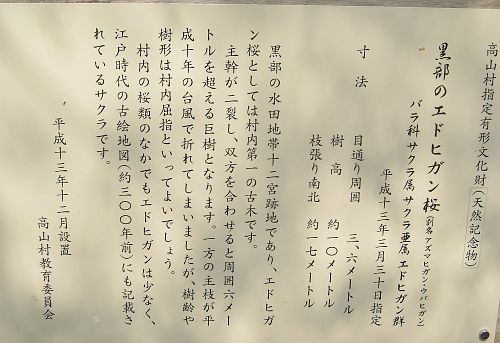 高山村指定有形文化財(天然記念物)
黒部のエドヒガン桜(別名アズマヒガン・ウバヒガン)
バラ科サクラ属サクラ亜属エドヒガン群
平成十三年三月三十日指定
寸法
目通り周囲 三、六メートル
樹高 約一〇メートル
枝張り南北 約一七メートル
黒部の水田地帯十二宮跡地であり、エドヒガ
ン桜としては村内第一の古木です。
主幹が二裂し、双方を合わせると周囲六メー
トルを超える巨樹となります。一方の主枝が平
成十年の台風で折れてしまいましたが、樹齢や
樹形は村内屈指といってよいでしょう。
村内の桜類のなかでもエドヒガンは少なく、
江戸時代の古絵地図(約三〇〇年前)にも記載さ
れているサクラです。
平成十三年十二月設置
高山村教育委員会